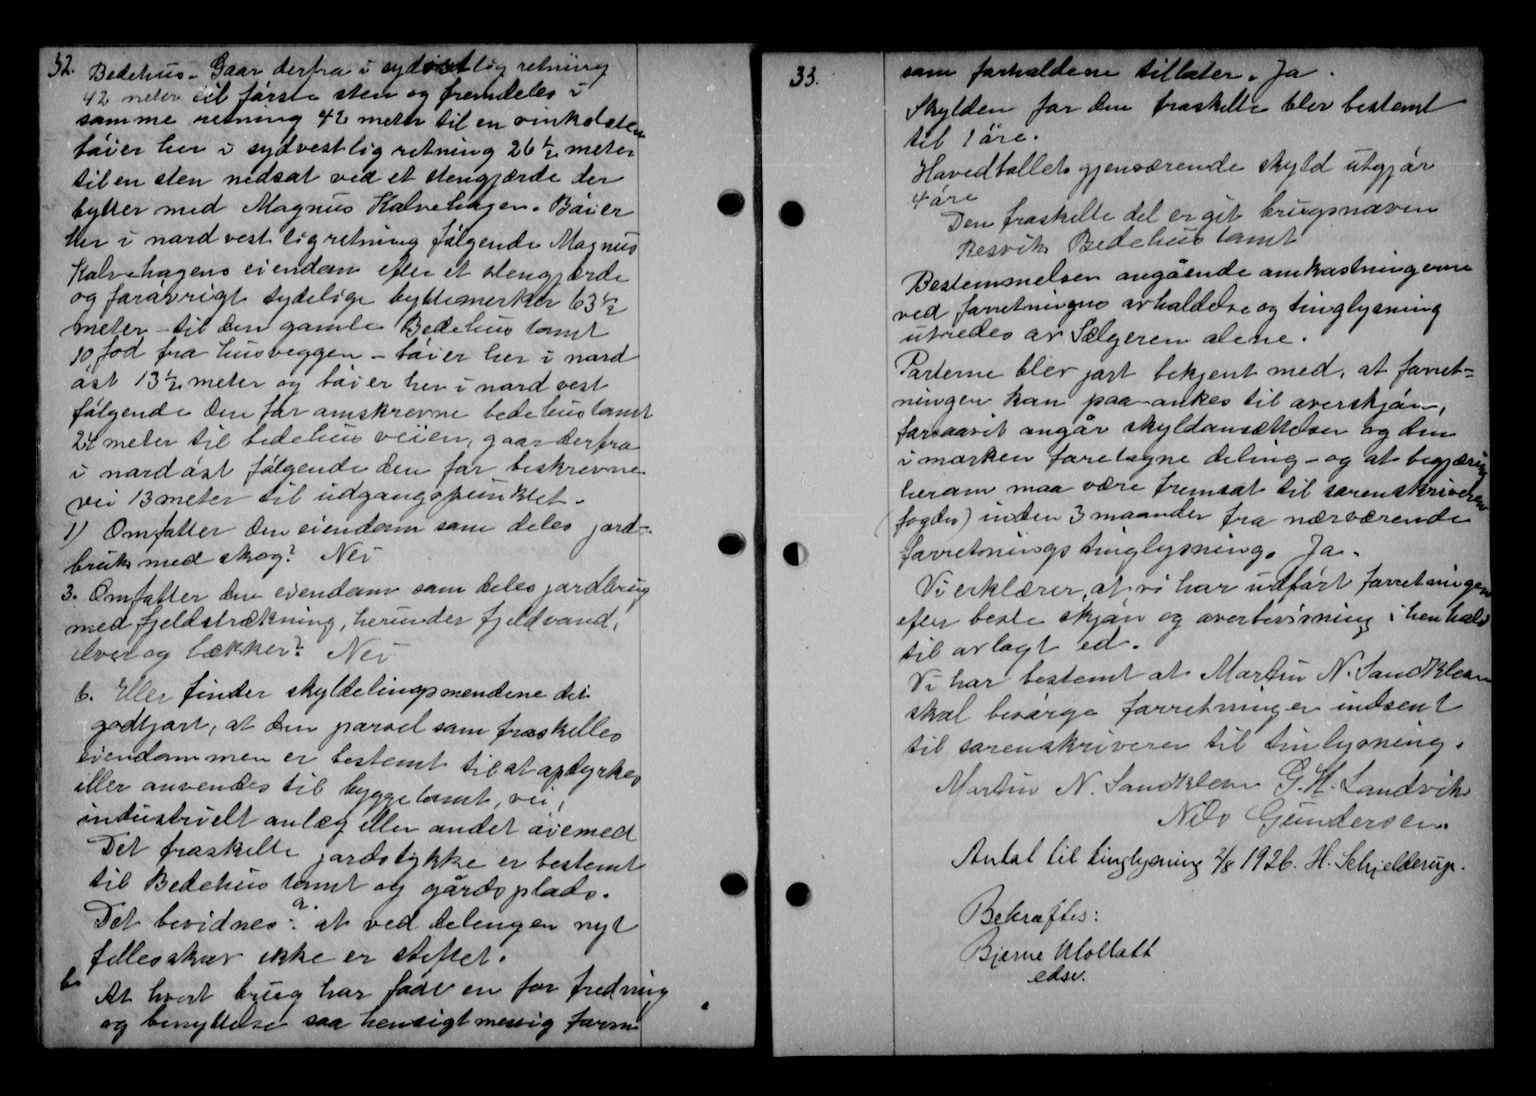 32.
Bedehus - Gaar derfra i sydøstlig retning
42 meter til første sten og fremdeles i
samme retning 42 meter til en vinkelsten
bøier her i sydvestlig retning 26 1/2 meter
til en sten nedsat ved et stengjærde der
bytter med Magnus Kalvehagen. Bøier
her i nordvestlig retning følgende Magnus
Kalvehagens eiendom efter et stengjærde
og forøvrigt tydelige byttemerker 63 1/2
meter - til den gamle Bedehustomt
10 fod fra husveggen - bøier her i nord
øst 13 1/2 meter og bøier her i nordvest
følgende den før omskrevne bedehustomt
24 meter til bedehusveien, gaar derfra
i nordøst følgende den før beskrevne
vei 13 meter til udgangspunktet.
1) Omfatter den eiendom som deles jord-
bruk med skog? Nei
3. Omfatter den eiendom som deles jordbrug
med fjeldstrækning, herunder fjeldvand,
elver og bækker? Nei
6. Eller finder skyldelingsmendene det
godtjort, at den parsel som fraskilles
eiendommen er bestemt til at opdyrkes
eller anvendes til byggetomt, vei,
industrielt anlæg eller andet øiemed
Det fraskilte jordstykke er bestemt
til Bedehustomt og gårdsplads.
Det bevidnes: a. at ved delingen nyt
fellesskap ikke er stiftet.
b. At hvert brug har fået en for fredning
og benyttelse saa hensigtmessig form
33.
som forholdene tillater. Ja.
Skylden for den fraskilte blev bestemt
til 1 øre.
Hovedbøllets gjenværende skyld utgjør
4 øre
Den fraskilte del er git brugsnavn
Resvik Bedehustomt
Bestemmelsen angående omkostningerne
ved forretningens avholdelse og tinglysning
utredes av Sælgeren alene.
Parterne blev jort bekjent med, at forret-
ningen kan paa-ankes til overskjøn,
forsaavit angår skyldansættelsen og den
i marken foretagne deling - og at begjæring
herom maa være fremsat til sorenskriveren
(fogden) inden 3 maander fra nærværende
forretnings tinglysning. Ja.
Vi erklærer, at vi har udført forretningen
efter beste skjøn og overbevisning i henhold
til avlagt ed.
Vi har bestemt at Martin N. Sandkleven
skal besørge forretningen indsent
til sorenskriveren til tinlysning.
Martin N. Sandkleven G. H. Landvik
Nils Gundersen.
Antat til tinglysning 2/8 1926. H. Schjelderup.
Bekræftes:
Bjerne
edsv.